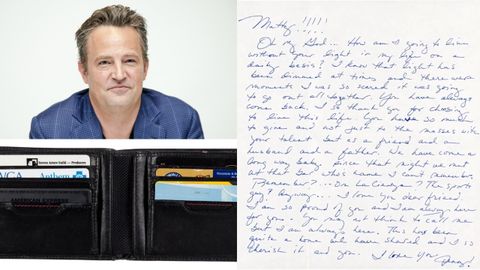 Matty!!!!!
Oh my God... How am I going to live
without your light in my life on a
daily basis? I know that light has
been dimmed at times and there were
moments I was so scared it was going
to go out all together. You have always
come back. I so thank you for choosing
to live this life. You have so much
to give and not just to the masses with
your talent but as a friend and an
husband and a father. We have come a
long way baby since that night we met
at that bar who's name I can't remember.
Remember?... The sports
guy? Anyway... I love you dear friend
I am so proud of you and I am always here
for you. You may not think to call me
but I am always here. This has been
quite a home we have shared and I so
cherish it and you. I love you
Anthem
AMERICAN EXPRESS